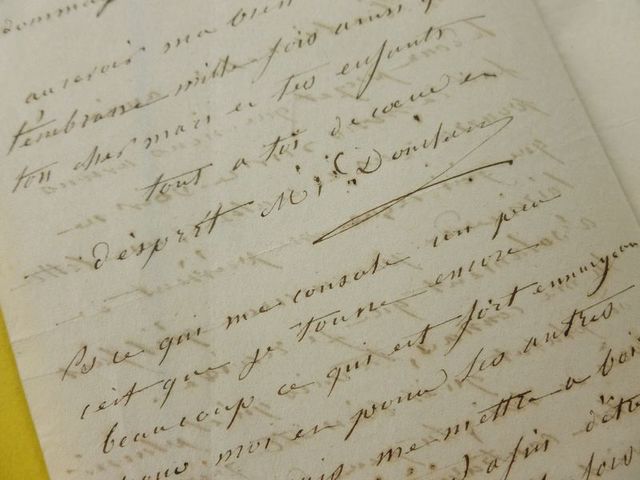 dommag
au revoir ma bien
t'embrasse mille fois ainsi q
ton cher mari et tes enfants
tout a toi de coeur et
d'esprit
Ps ce qui me console un peu
c'est que je tousse encore
beaucoup ce qui est fort ennuyeux
pour moi et pour les autres
me mettre a boi
afin d'ête
fois